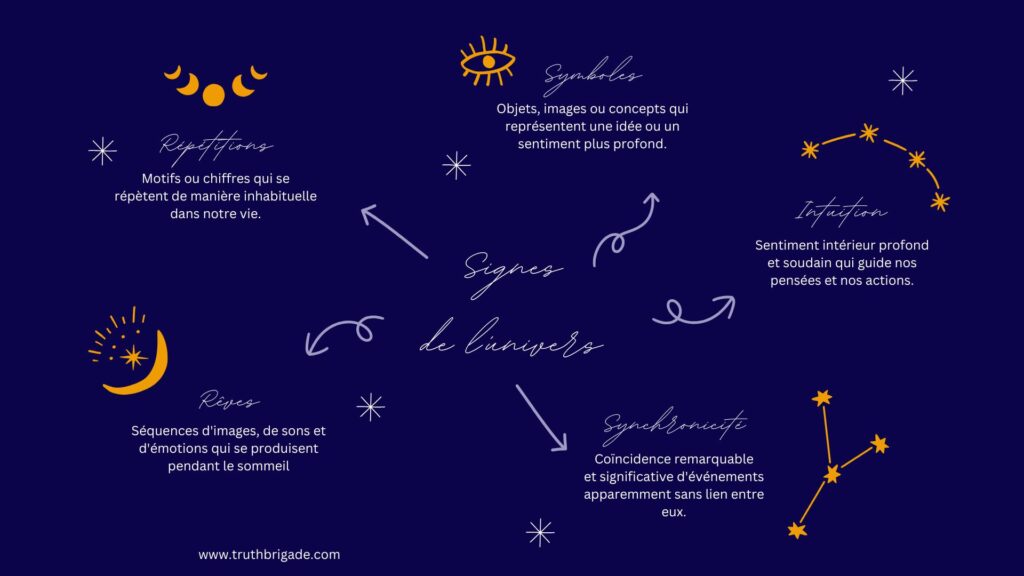 Symboles
Objets, images ou concepts qui
représentent une idée ou un
sentiment plus profond.
Répétitions
Motifs ou chiffres qui se
répètent de manière inhabituelle
dans notre vie.
Intuition
Sentiment intérieur profond
et soudain qui guide nos
pensées et nos actions.
Signes
de l'univers
Rêves
Séquences d'images, de sons et
d'émotions qui se produisent
pendant le sommeil
Synchronicité
Coïncidence remarquable
et significative d'événements
apparemment sans lien entre
eux.
www.truthbrigade.com